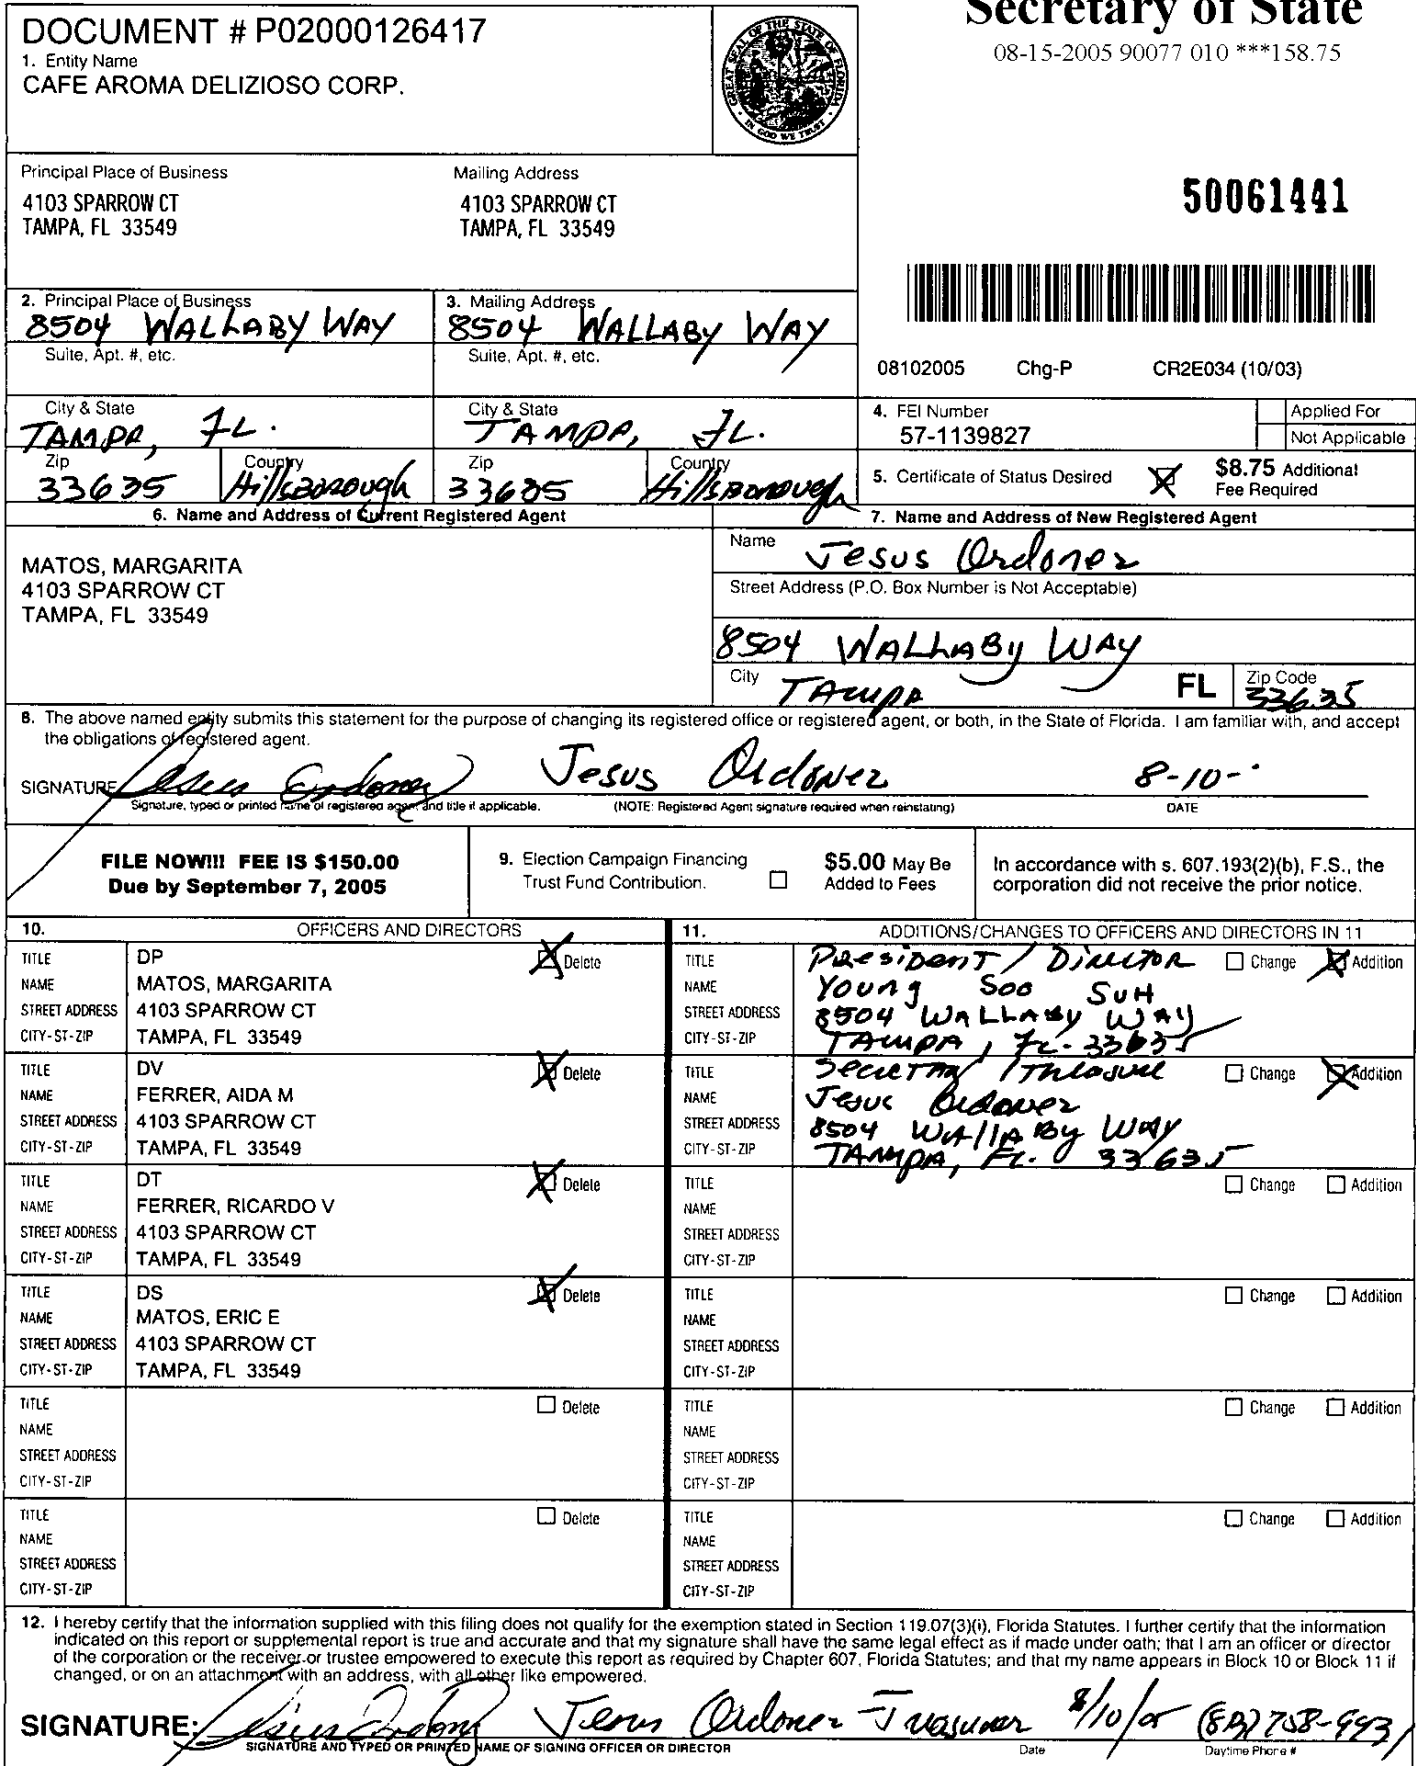 Secretary of State
08-15-2005 90077 010 ***158.75
DOCUMENT # P02000126417
1. Entity Name
CAFE AROMA DELIZIOSO CORP.
GREAT SEAL OF THE STATE OF FLORIDA
IN GOD WE TRUST
Principal Place of Business
4103 SPARROW CT
TAMPA, FL 33549
Mailing Address
4103 SPARROW CT
TAMPA, FL 33549
50061441
2. Principal Place of Business
8504 WALLABY WAY
Suite, Apt. #, etc.
3. Mailing Address
8504 WALLABY WAY
Suite, Apt. #, etc.
08102005 Chg-P CR2E034 (10/03)
City & State
TAMPA, FL.
City & State
TAMPA, FL.
Zip
33635
Country
Hillsborough
Zip
33635
Country
Hillsborough
4. FEI Number
57-1139827
Applied For
Not Applicable
5. Certificate of Status Desired
$8.75 Additional
Fee Required
6. Name and Address of Current Registered Agent
MATOS, MARGARITA
4103 SPARROW CT
TAMPA, FL 33549
7. Name and Address of New Registered Agent
Name
Jesus Ordonez
Street Address (P.O. Box Number is Not Acceptable)
8504 WALLABY WAY
City
TAMPA
FL
Zip Code
33635
8. The above named entity submits this statement for the purpose of changing its registered office or registered agent, or both, in the State of Florida. I am familiar with, and accept
the obligations of registered agent.
SIGNATURE Jesus Ordonez 8-10-
Signature, typed or printed name of registered agent and title if applicable. (NOTE: Registered Agent signature required when reinstating) DATE
FILE NOW!!! FEE IS $150.00
Due by September 7, 2005
9. Election Campaign Financing
Trust Fund Contribution.
$5.00 May Be
Added to Fees
In accordance with s. 607.193(2)(b), F.S., the
corporation did not receive the prior notice.
10. OFFICERS AND DIRECTORS
TITLE DP Delete
NAME MATOS, MARGARITA
STREET ADDRESS 4103 SPARROW CT
CITY-ST-ZIP TAMPA, FL 33549
TITLE DV Delete
NAME FERRER, AIDA M
STREET ADDRESS 4103 SPARROW CT
CITY-ST-ZIP TAMPA, FL 33549
TITLE DT Delete
NAME FERRER, RICARDO V
STREET ADDRESS 4103 SPARROW CT
CITY-ST-ZIP TAMPA, FL 33549
TITLE DS Delete
NAME MATOS, ERIC E
STREET ADDRESS 4103 SPARROW CT
CITY-ST-ZIP TAMPA, FL 33549
TITLE Delete
NAME
STREET ADDRESS
CITY-ST-ZIP
TITLE Delete
NAME
STREET ADDRESS
CITY-ST-ZIP
11. ADDITIONS/CHANGES TO OFFICERS AND DIRECTORS IN 11
TITLE President / Director Change Addition
NAME Young Soo Suh
STREET ADDRESS 8504 WALLABY WAY
CITY-ST-ZIP TAMPA, FL. 33635
TITLE Secretary / Treasure Change Addition
NAME Jesus Ordonez
STREET ADDRESS 8504 WALLABY WAY
CITY-ST-ZIP TAMPA, FL. 33635
TITLE Change Addition
NAME
STREET ADDRESS
CITY-ST-ZIP
TITLE Change Addition
NAME
STREET ADDRESS
CITY-ST-ZIP
TITLE Change Addition
NAME
STREET ADDRESS
CITY-ST-ZIP
TITLE Change Addition
NAME
STREET ADDRESS
CITY-ST-ZIP
12. I hereby certify that the information supplied with this filing does not qualify for the exemption stated in Section 119.07(3)(i), Florida Statutes. I further certify that the information
indicated on this report or supplemental report is true and accurate and that my signature shall have the same legal effect as if made under oath; that I am an officer or director
of the corporation or the receiver or trustee empowered to execute this report as required by Chapter 607, Florida Statutes; and that my name appears in Block 10 or Block 11 if
changed, or on an attachment with an address, with all other like empowered.
SIGNATURE: Jesus Ordonez - Treasurer 8/10/05
SIGNATURE AND TYPED OR PRINTED NAME OF SIGNING OFFICER OR DIRECTOR Date Daytime Phone #